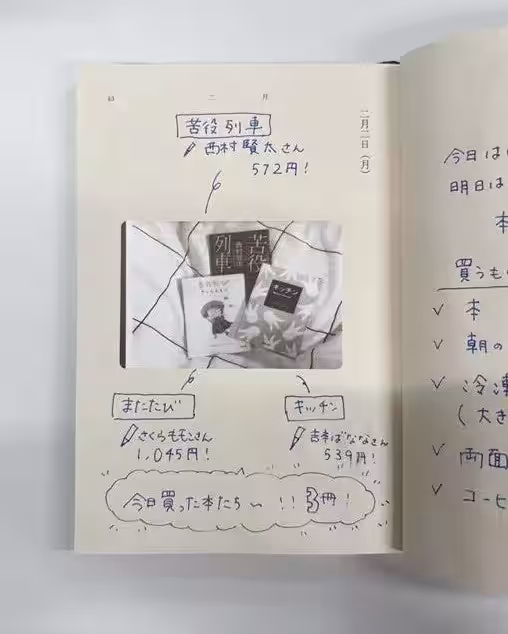 43
二月
二月二日（月）
苦役列車
西村賢太さん
572円！
苦役
列車
キッチン
またたび
さくらももこさん
1,045円！
キッチン
吉本ばななさん
539円！
今日買った本たち〜 !! 3冊！
今日は
明日は
本
買うもの
✓ 本
✓ 朝の
✓ 冷凍
（大き
✓ 両面
✓ コーヒ